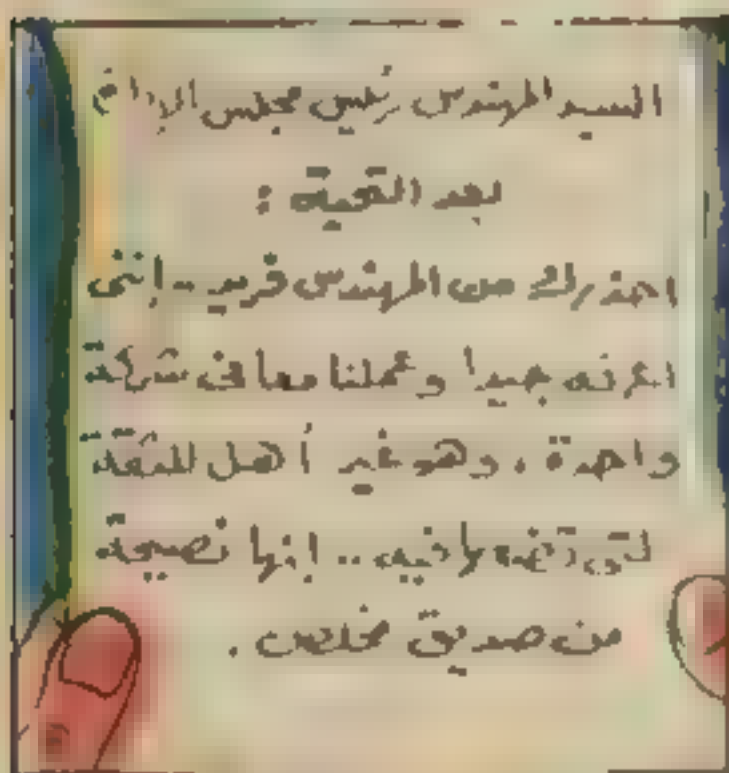 السيد المهندس رئيس مجلس الإدارة
بعد التحية :
احذرك من المهندس فريد .. إننى
اعرفه جيدا وعملنا معا فى شركة
واحدة ، وهو غير أهل للثقة
التى تضعها فيه .. إنها نصيحة
من صديق مخلص .